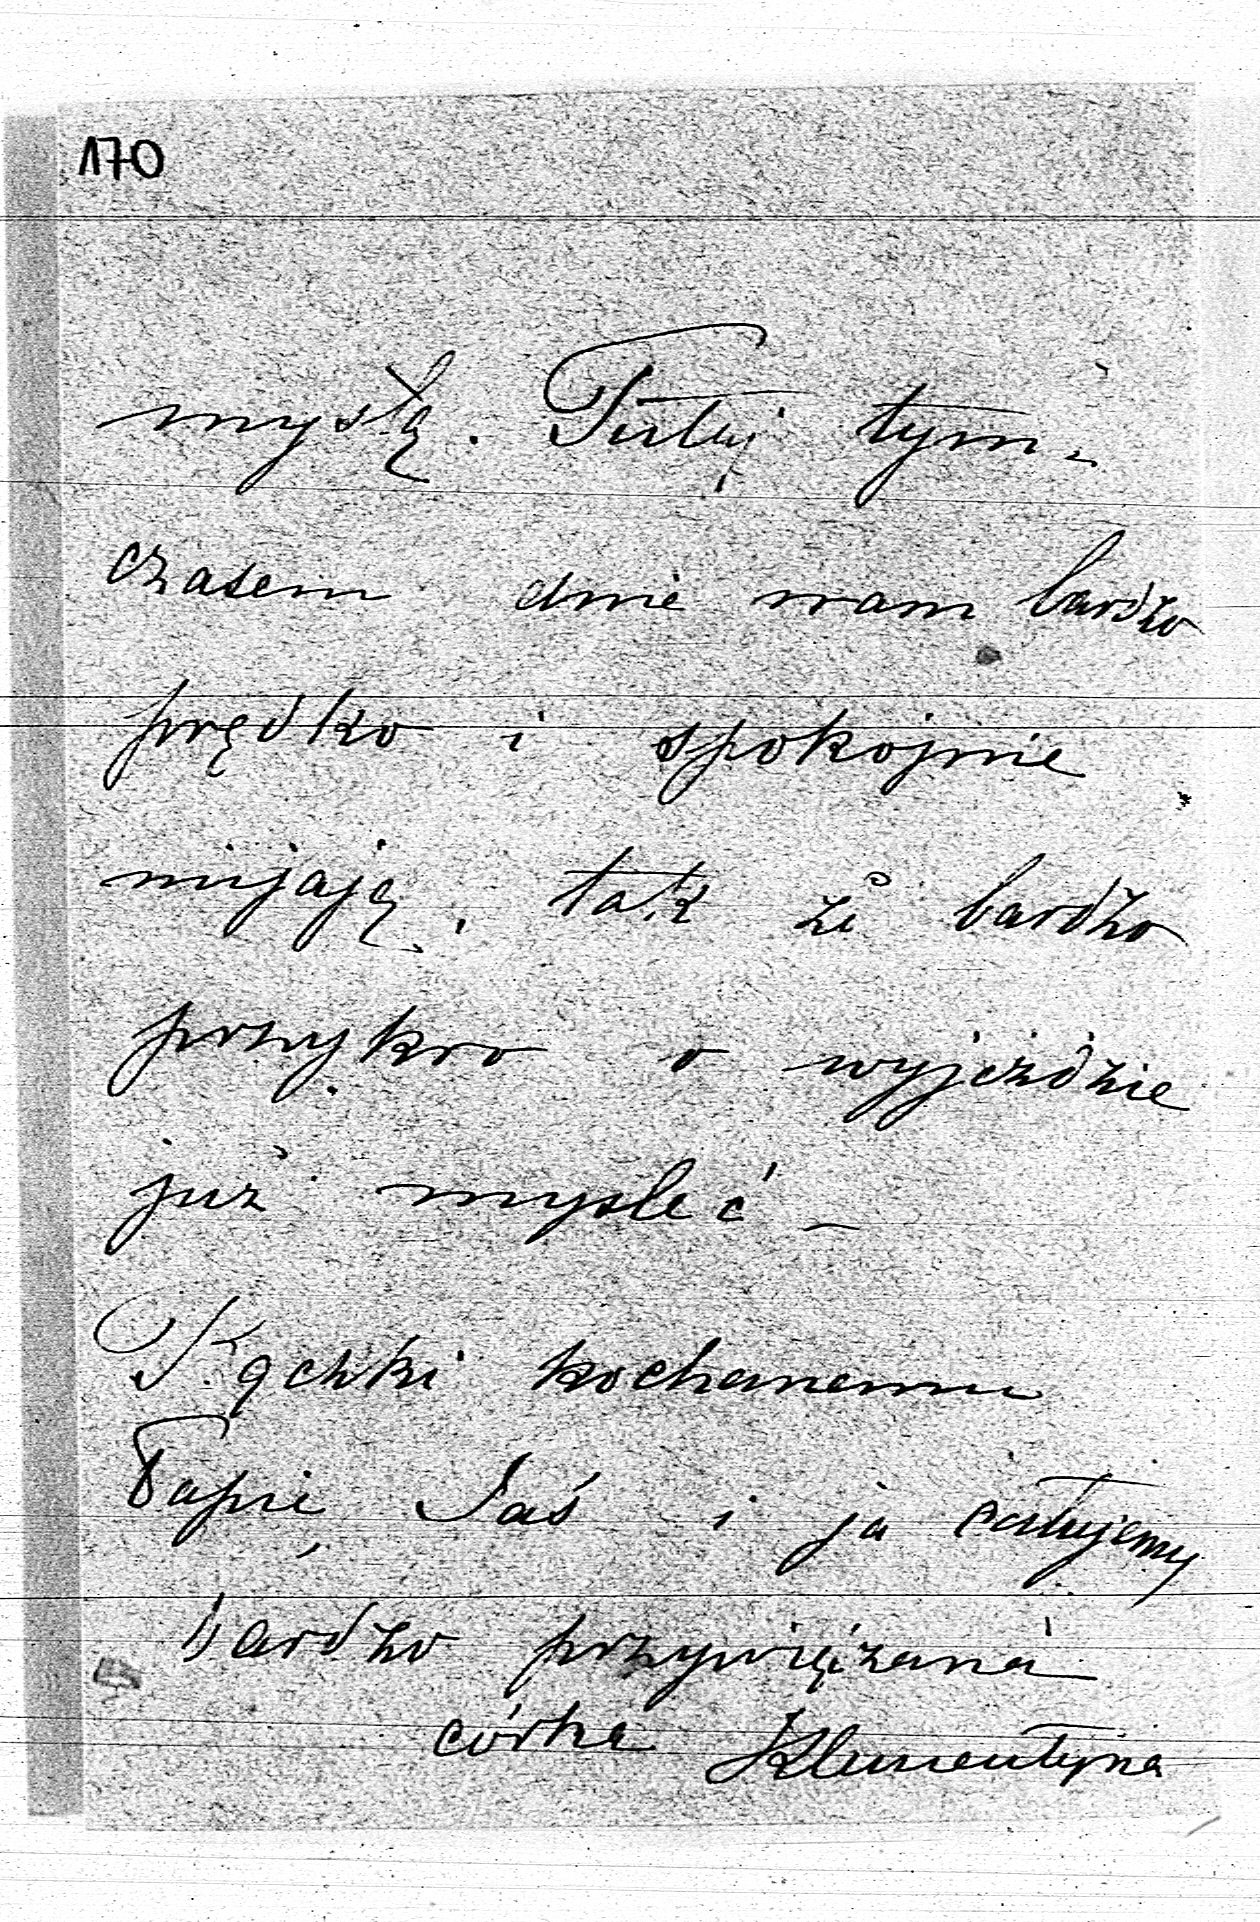 170
myślą. Tutaj tym-
czasem dnie nam bardzo
prędko i spokojnie
mijają, tak że bardzo
przykro o wyjeździe
już myśleć –
Rączki kochanemu
Papie Jaś i ja całujemy
bardzo przywiązana
córka Klementyna